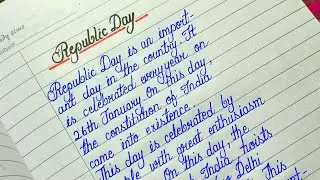 Republic Day
Republic Day is an import-
ant day in the country. It
is celebrated every year on
26th January. On this day,
the constitution of India
came into existence.
This day is celebrated by
with great enthusiasm
On this day, the
India hoists
Delhi. This